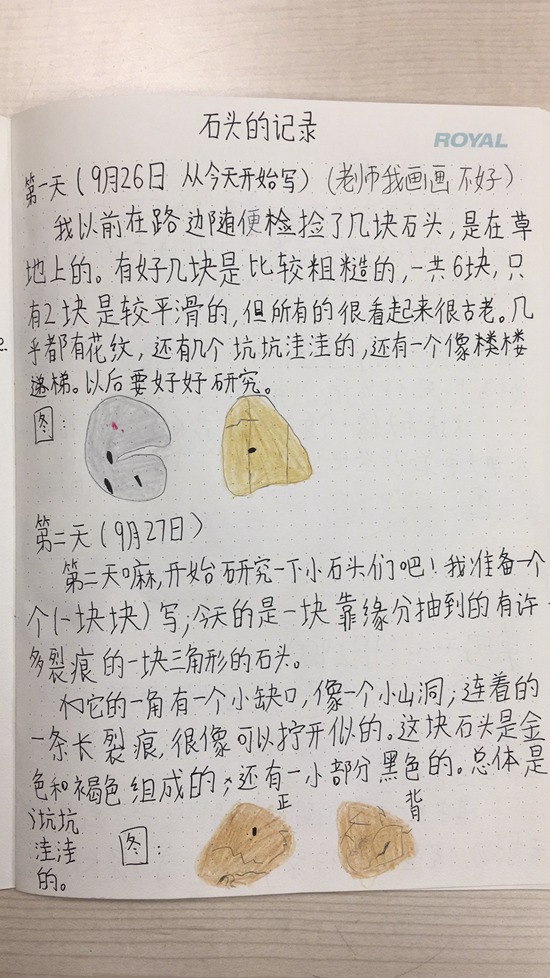 石头的记录
ROYAL
第一天（9月26日 从今天开始写）（老师我画画不好）
我以前在路边随便检捡了几块石头，是在草
地上的。有好几块是比较粗糙的，一共6块，只
有2块是较平滑的，但所有的很看起来很古老。几
乎都有花纹，还有几个坑坑洼洼的，还有一个像楼楼
递梯。以后要好好研究。
图：
第二天（9月27日）
第二天嘛，开始研究一下小石头们吧！我准备一个
个（一块块）写；今天的是一块靠缘分抽到的有许
多裂痕的一块三角形的石头。
它的一角有一个小缺口，像一个小山洞；连着的
一条长裂痕，很像可以拧开似的。这块石头是金
色和褐色组成的，还有一小部分黑色的。总体是
坑坑
洼洼
的。
图：
正
背